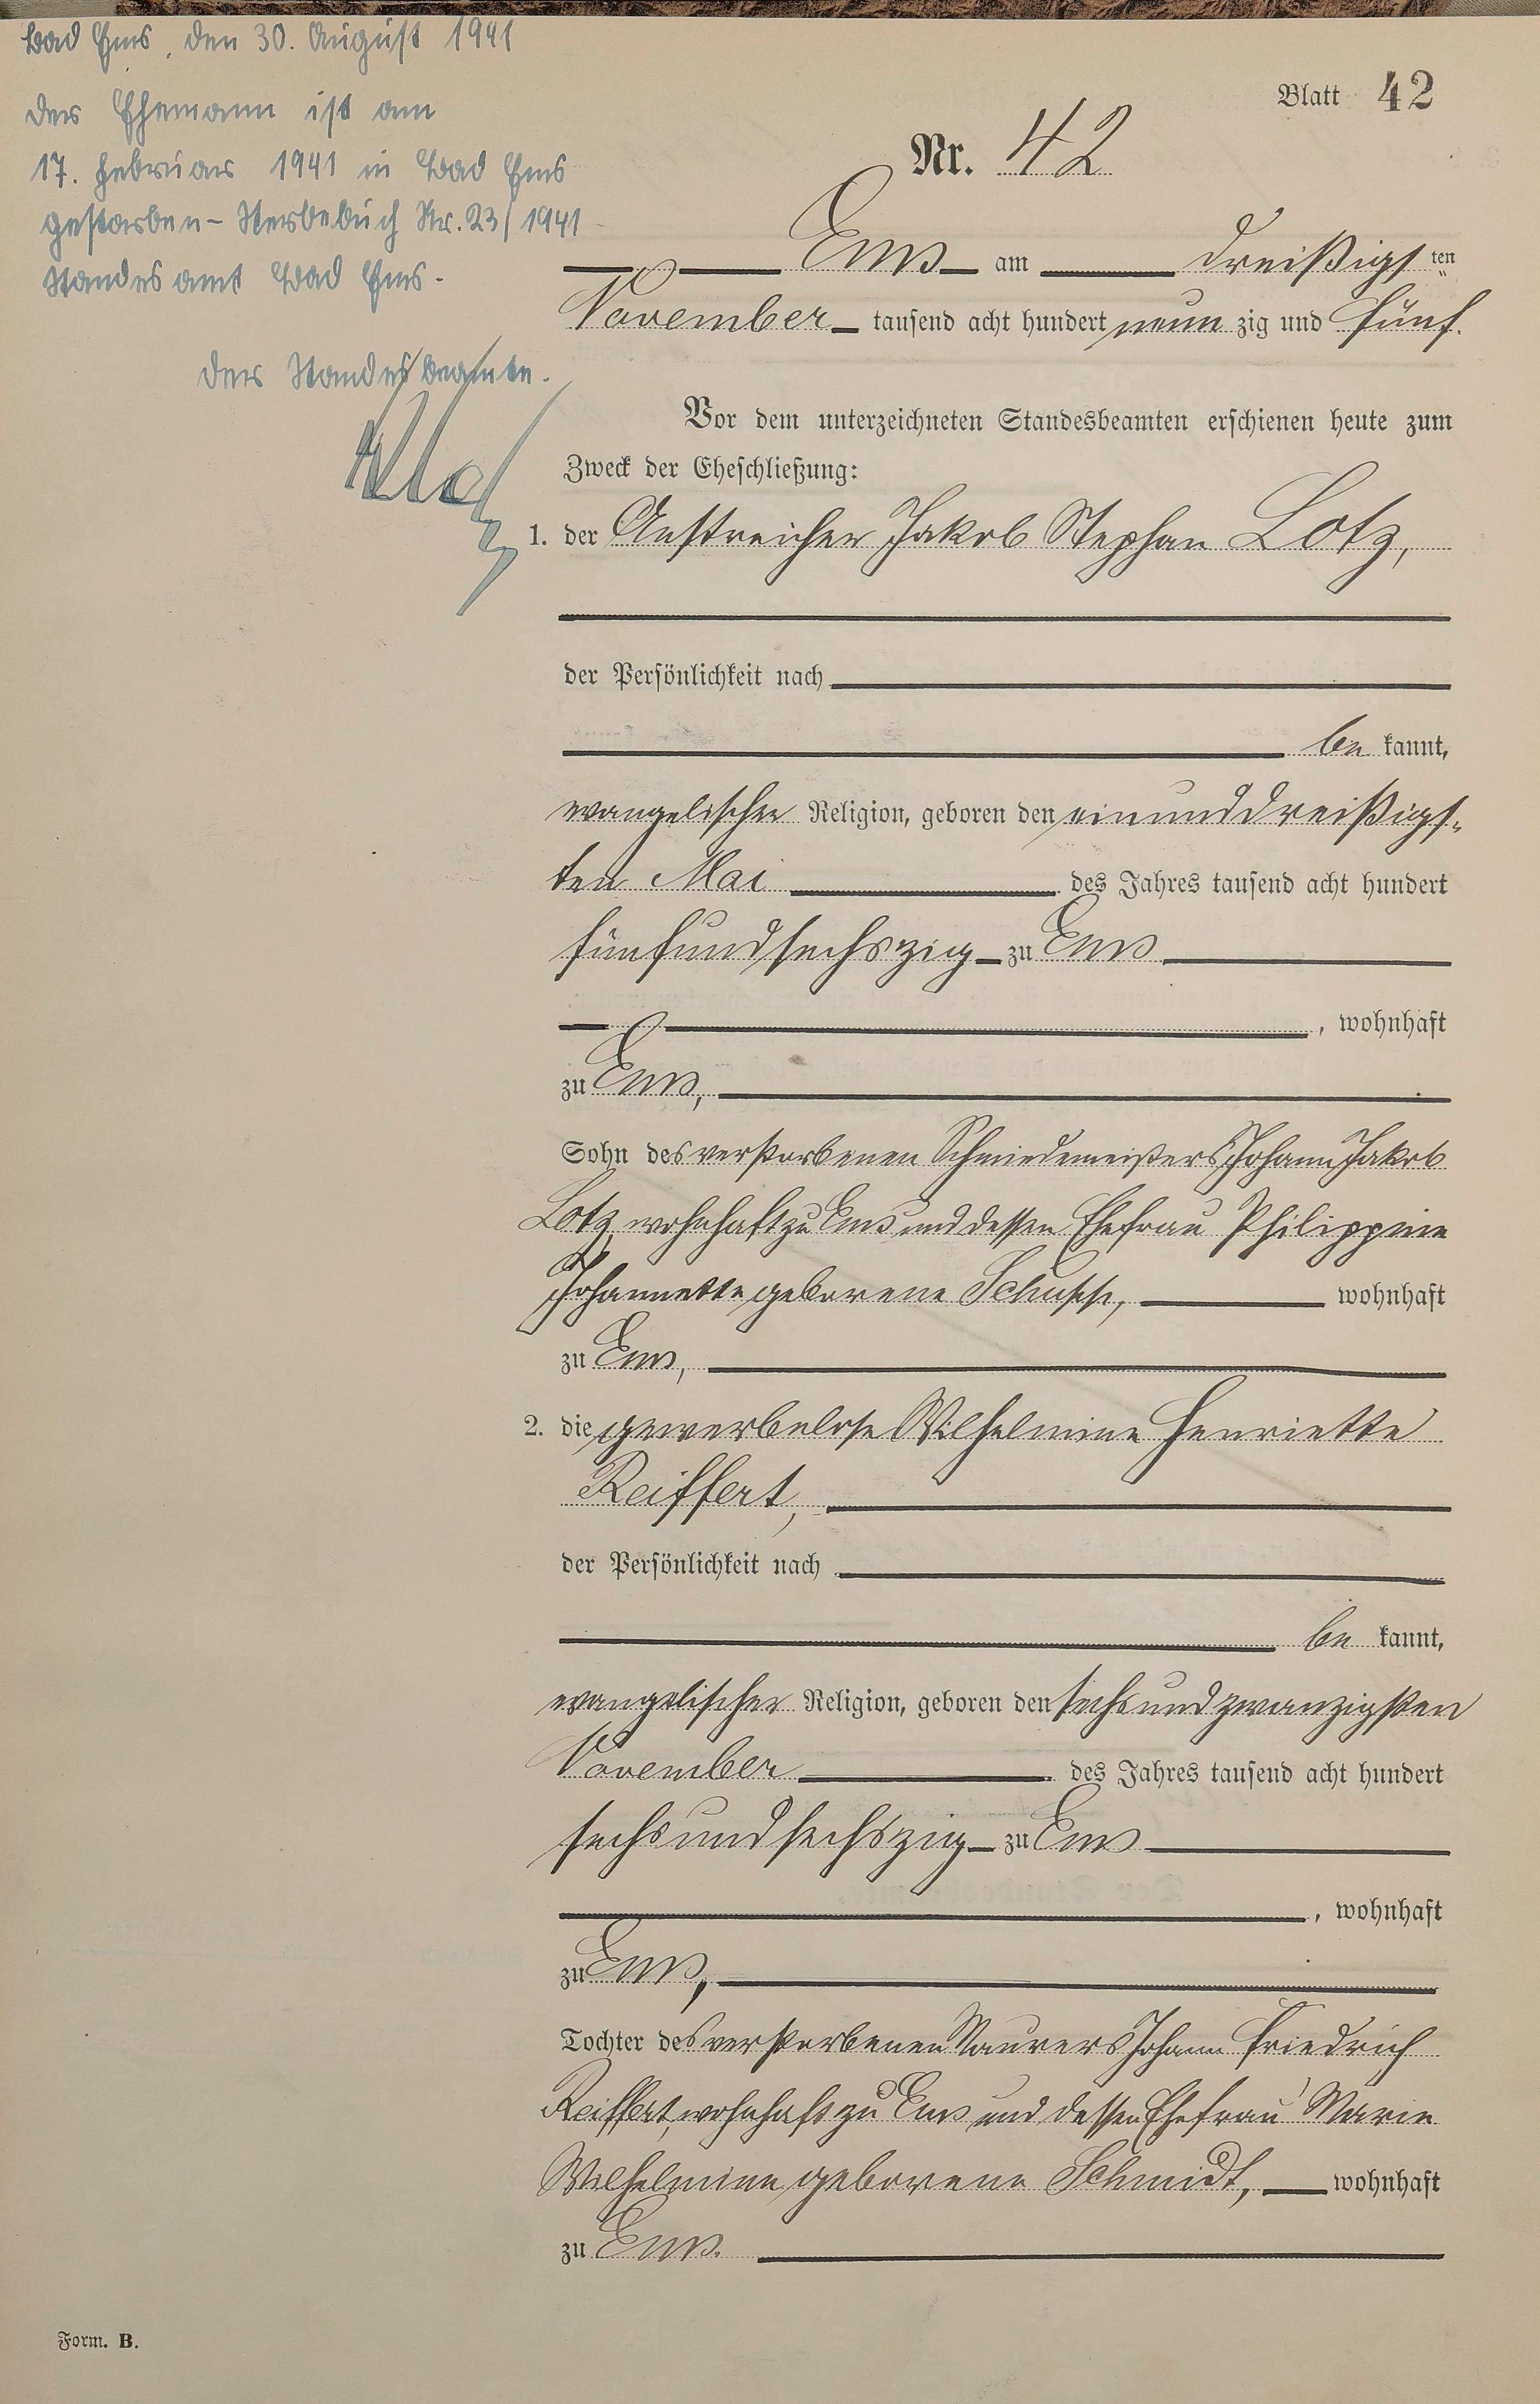 Bad Ems, den 30. August 1941
Der Ehemann ist am
17. Februar 1941 in Bad Ems
gestorben - Sterbebuch Nr. 23/1941
Standesamt Bad Ems.
Der Standesbeamte.
Blatt 42
Nr. 42
Ems am dreißigsten
November tausend acht hundert neun zig und fünf.
Vor dem unterzeichneten Standesbeamten erschienen heute zum
Zweck der Eheschließung:
1. der Anstreicher Jakob Stephan Lotz,
der Persönlichkeit nach
be kannt,
evangelischer Religion, geboren den einunddreißigs-
ten Mai des Jahres tausend acht hundert
fünfundsechszig zu Ems
, wohnhaft
zu Ems,
Sohn des verstorbenen Schmiedemeisters Johann Jakob
Lotz, wohnhaft zu Ems und dessen Ehefrau Philippine
Johannette geborene Schupp, wohnhaft
zu Ems,
2. die gewerbelose Wilhelmine Henriette
Reiffert,
der Persönlichkeit nach
be kannt,
evangelischer Religion, geboren den sechsundzwanzigsten
November des Jahres tausend acht hundert
sechsundsechszig zu Ems
, wohnhaft
zu Ems,
Tochter des verstorbenen Maurers Johann Friedrich
Reiffert, wohnhaft zu Ems und dessen Ehefrau Marie
Wilhelmine geborene Schmidt, wohnhaft
zu Ems.
Form. B.